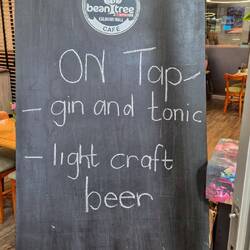 beanTree
CAFÉ
ON Tap-
- gin and tonic
- light craft
beer